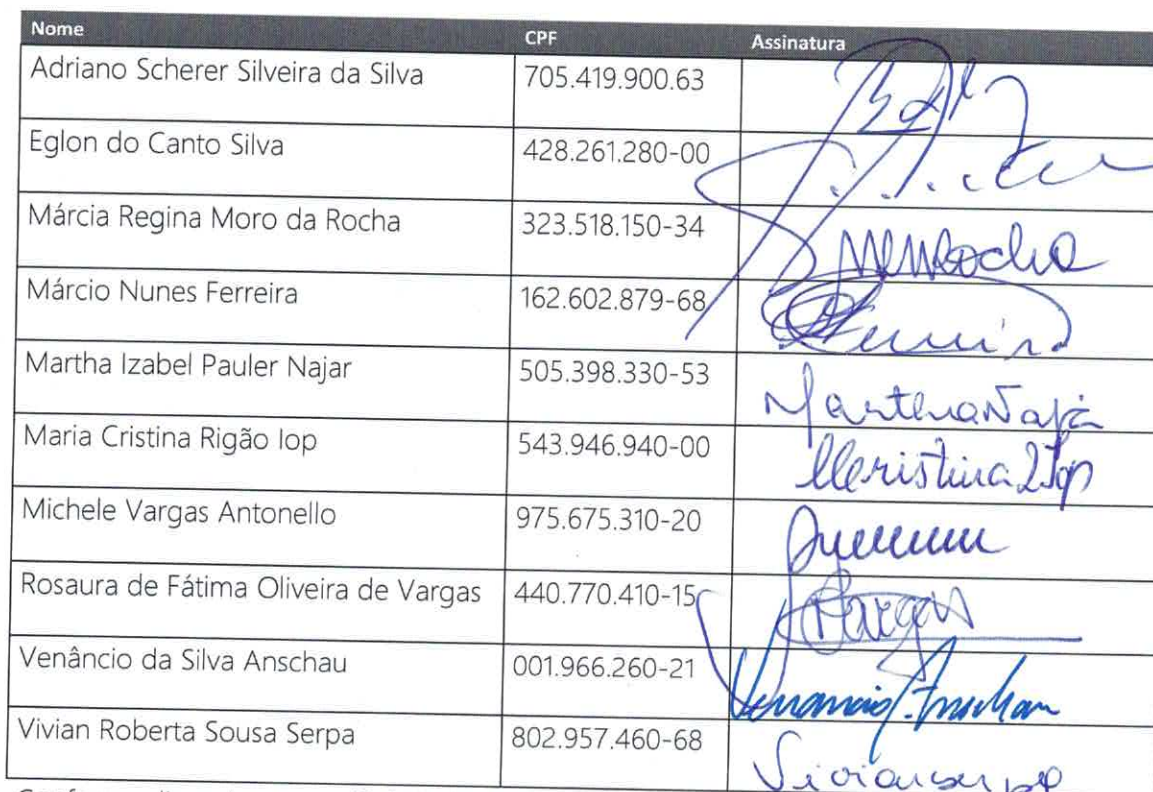 Nome CPF Assinatura
Adriano Scherer Silveira da Silva 705.419.900.63
Eglon do Canto Silva 428.261.280-00
Márcia Regina Moro da Rocha 323.518.150-34 MMRocha
Márcio Nunes Ferreira 162.602.879-68
Martha Izabel Pauler Najar 505.398.330-53
Maria Cristina Rigão Iop 543.946.940-00
Michele Vargas Antonello 975.675.310-20
Rosaura de Fátima Oliveira de Vargas 440.770.410-15 Vargas
Venâncio da Silva Anschau 001.966.260-21 Venancio S. Anschau
Vivian Roberta Sousa Serpa 802.957.460-68